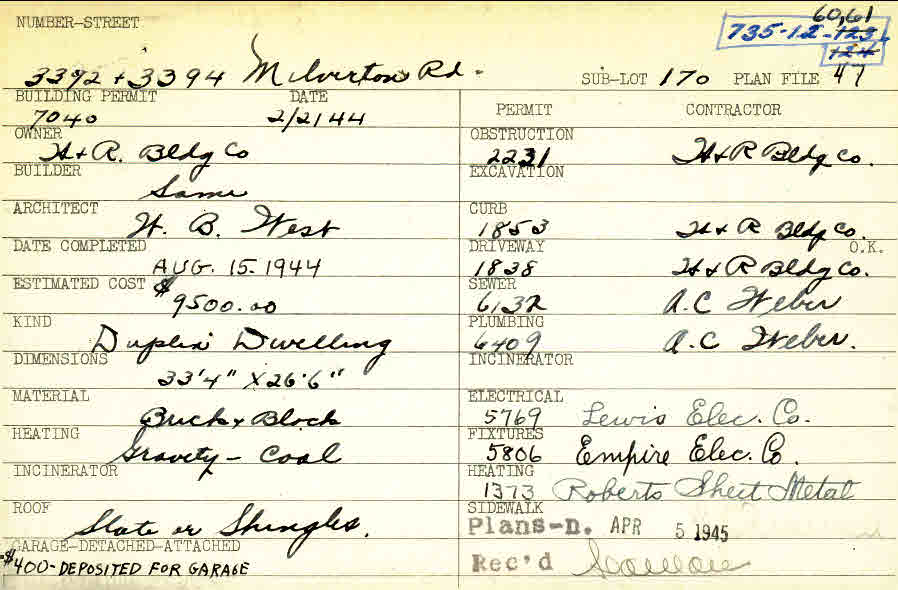 NUMBER-STREET
60,61
735-12-123
124
3392 + 3394 Milverton Rd. SUB-LOT 170 PLAN FILE 47
BUILDING PERMIT DATE PERMIT CONTRACTOR
7040 2/21/44
OWNER OBSTRUCTION
H+R. Bldg Co 2231 H+R Bldg Co.
BUILDER EXCAVATION
Same
ARCHITECT CURB
W. B. West 1853 H+R Bldg Co.
DATE COMPLETED DRIVEWAY O.K.
AUG. 15. 1944 1838 H+R Bldg Co.
ESTIMATED COST $ SEWER
9500.00 6132 A.C Weber
KIND PLUMBING
Duplex Dwelling 6409 A.C Weber.
DIMENSIONS INCINERATOR
33'4" X 26'6"
MATERIAL ELECTRICAL
Brick + Block 5769 Lewis Elec. Co.
HEATING FIXTURES
Gravity - Coal 5806 Empire Elec. Co.
INCINERATOR HEATING
1373 Roberts Sheet Metal
ROOF SIDEWALK
Slate or Shingles. Plans-D. APR 5 1945
GARAGE-DETACHED-ATTACHED
$400- DEPOSITED FOR GARAGE Rec'd